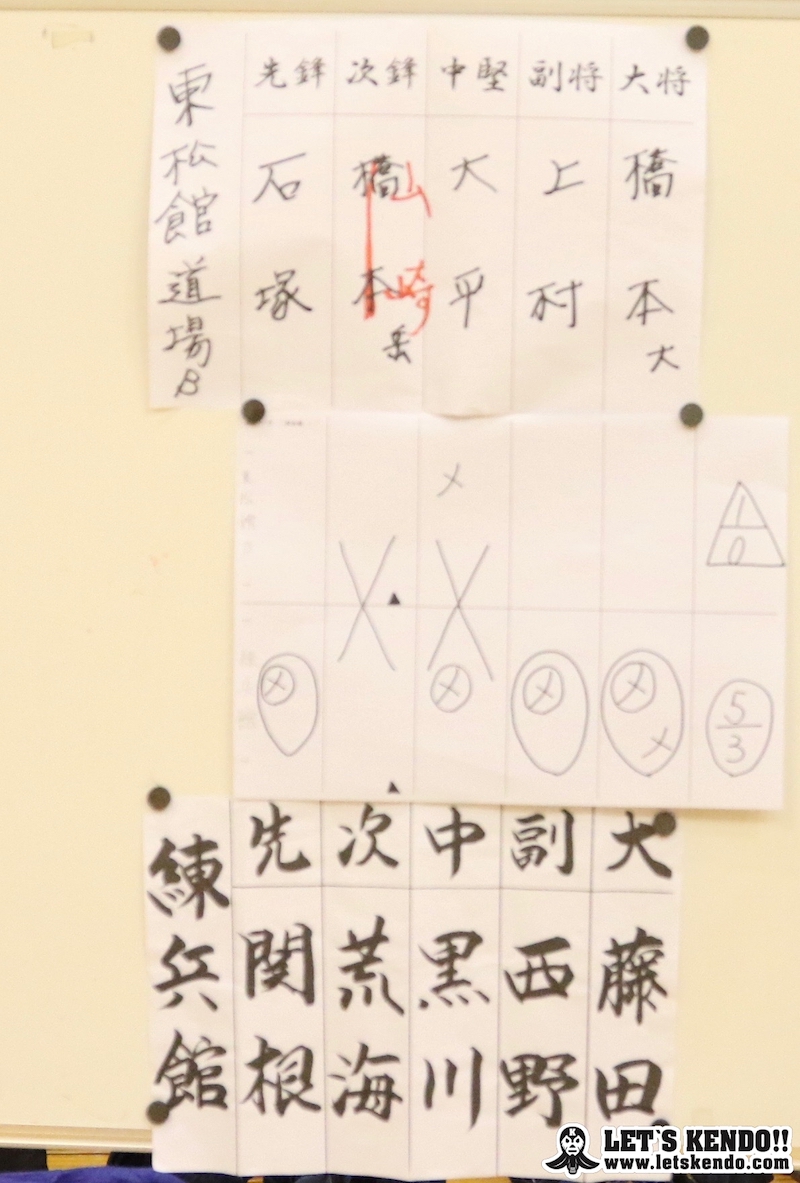 東松館道場B
先鋒 次鋒 中堅 副将 大将
石塚 橋本岳 大平 上村 橋本大
山崎
メ
1
0
▲
メ メ メ メ メ
5
3
▲
練兵館
先 次 中 副 大
関根 荒海 黒川 西野 藤田
LET`S KENDO!!
www.letskendo.com